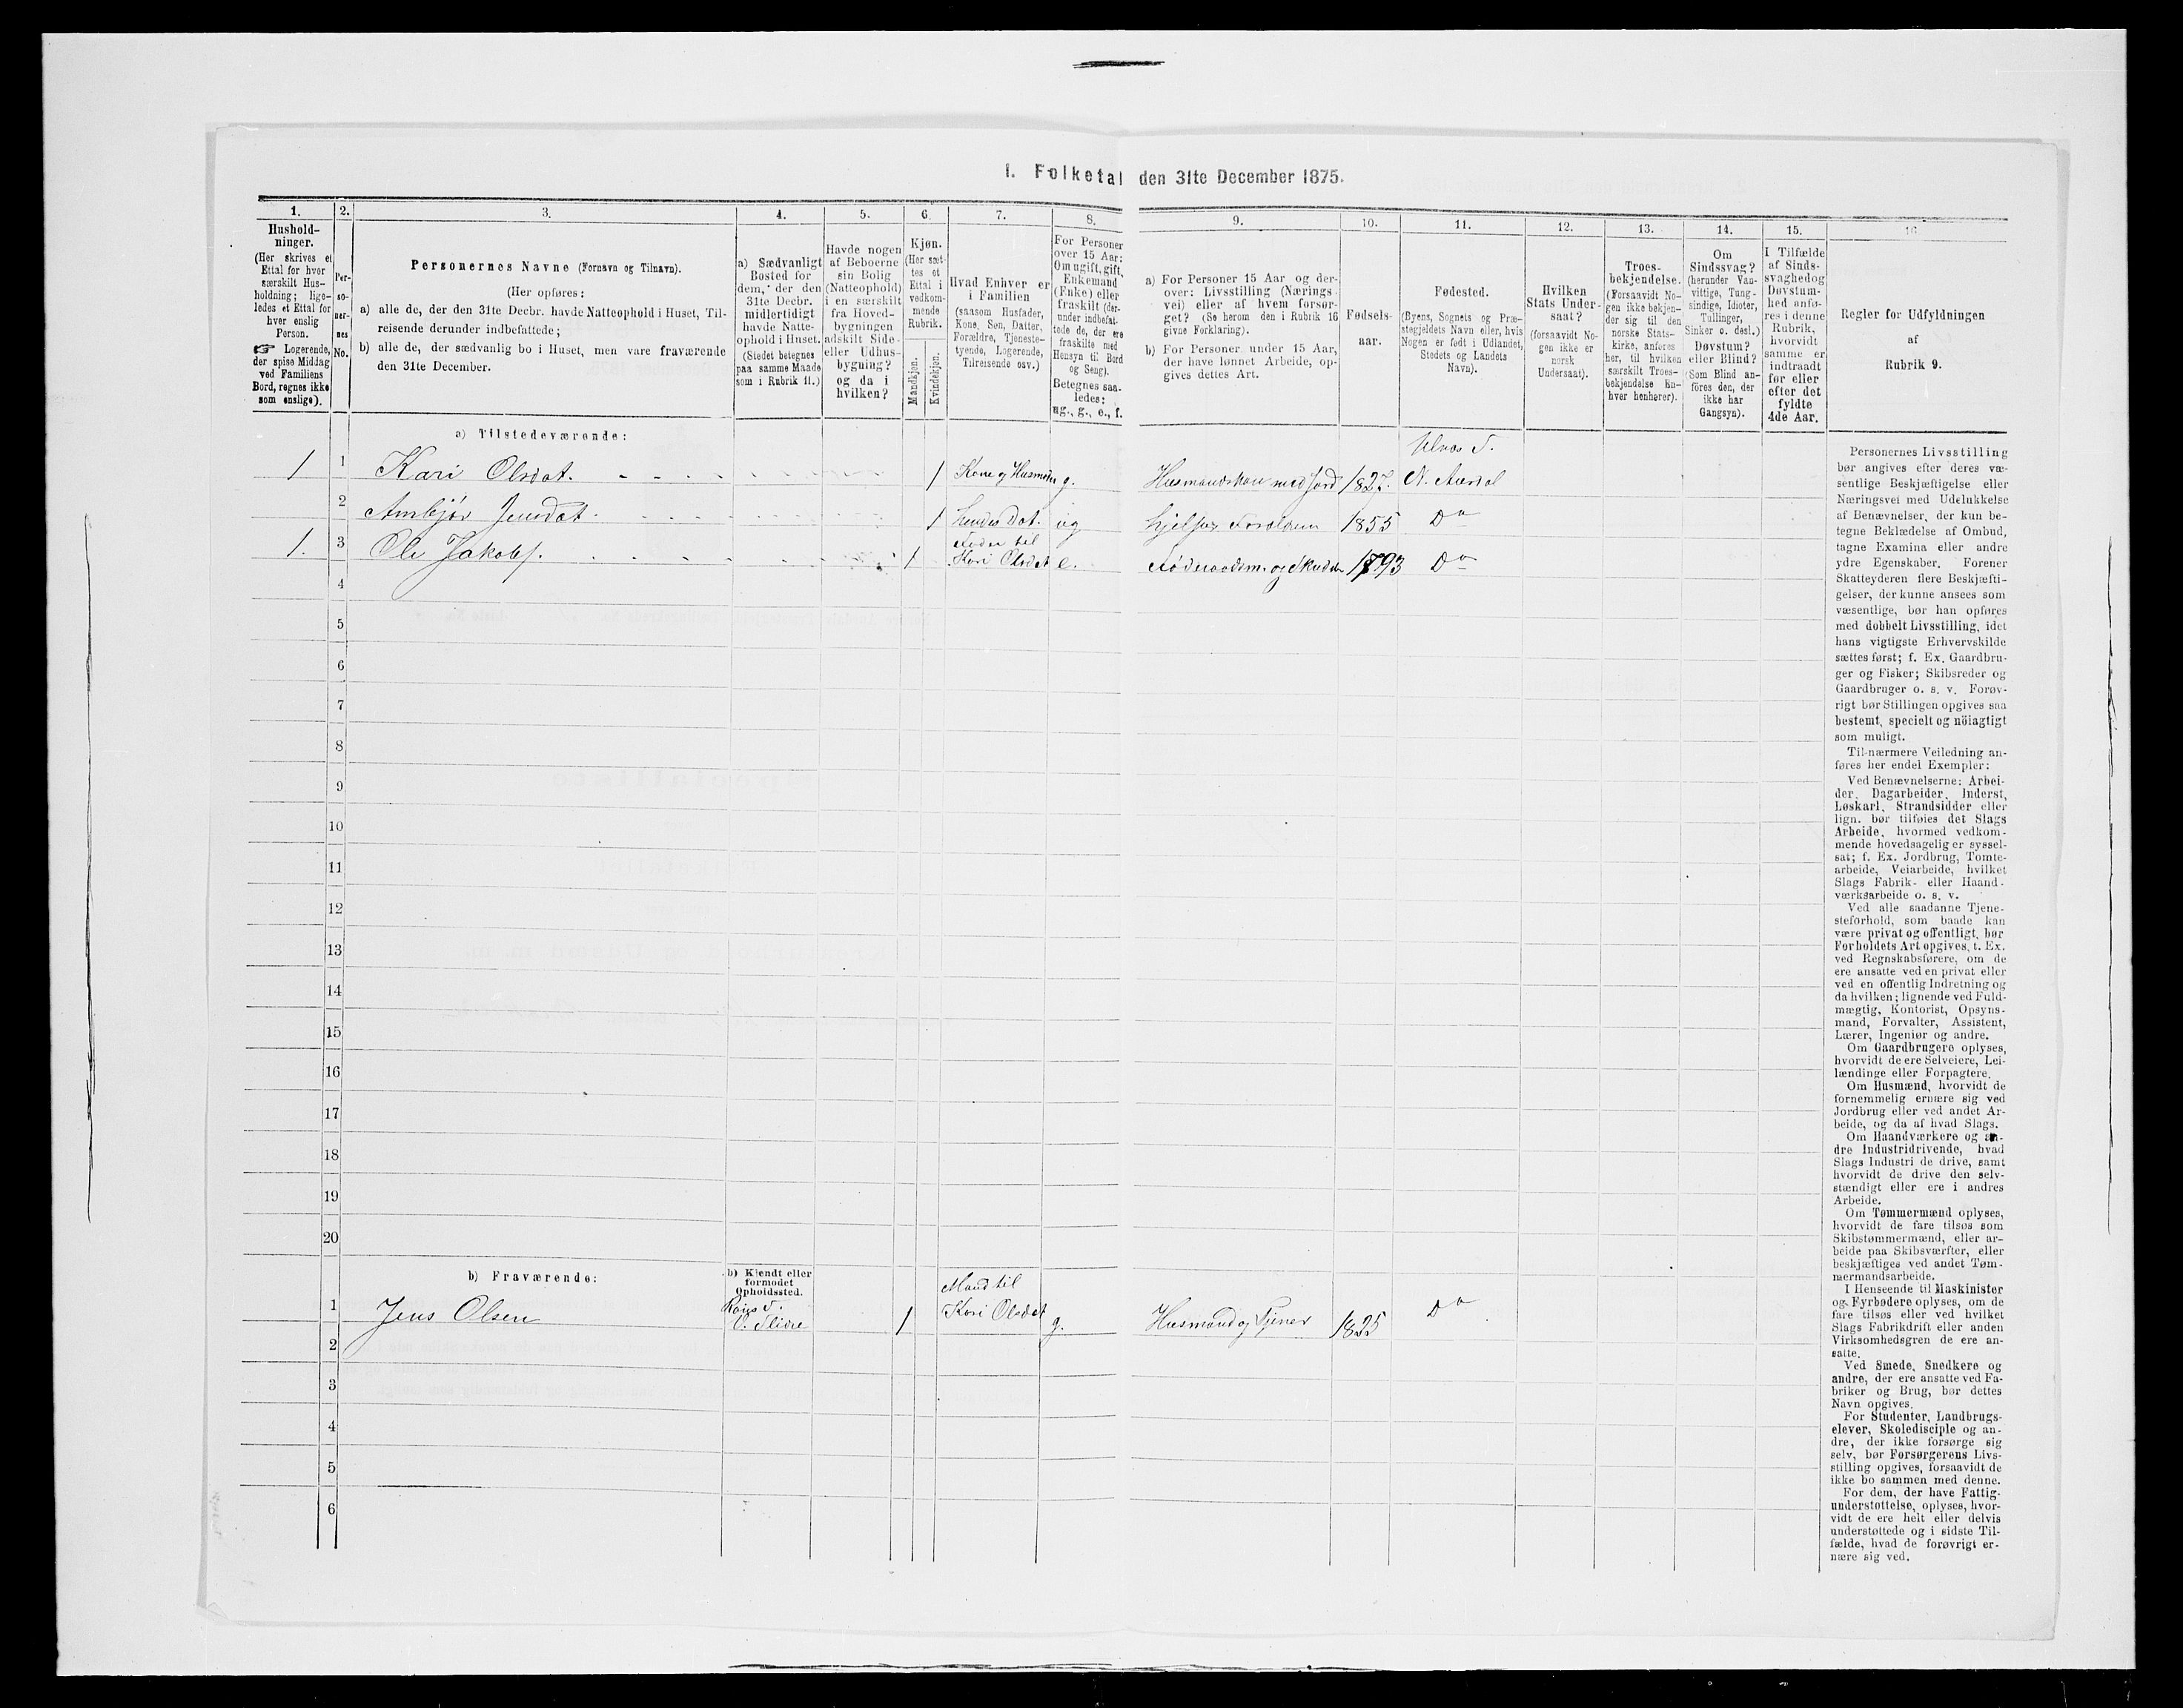 I. Folketal den 31te December 1875.
1.
2.
3.
4.
5.
6.
7.
8.
9.
10.
11.
12.
13.
14.
15.
16
Hushold-
ninger.
(Her skrives et
Ettal for hver
særskilt Hus-
holdning; lige-
ledes et Ettal for
hver enslig
Person.
☞ Logerende,
der spise Middag
ved Familiens
Bord, regnes ikke
som enslige).
Per-
so-
ner-
nes
No.
Personernes Navne (Fornavn og Tilnavn).
(Her opføres:
a) alle de, der den 31te Decbr. havde Natteophold i Huset, Til-
reisende derunder indbefattede;
b) alle de, der sædvanlig bo i Huset, men vare fraværende
den 31te December.
a) Sædvanligt
Bosted for
dem, der den
31te Decbr.
midlertidigt
havde Natte-
ophold i Huset.
(Stedet betegnes
paa samme Maade
som i Rubrik 11.)
Havde nogen
af Beboerne
sin Bolig
(Natteophold)
i en særskilt
fra Hoved-
bygningen
adskilt Side-
eller Udhus-
bygning?
og da i
hvilken?
Kjøn.
(Her sæt-
tes et
Ettal i
vedkom-
mende
Rubrik.
Mandkjøn.
Kvindekjøn.
Hvad Enhver er
i Familien
(saasom Husfader,
Kone, Søn, Datter,
Forældre, Tjeneste-
tyende, Logerende,
Tilreisende osv.)
For Personer
over 15 Aar:
Om ugift, gift,
Enkemand
(Enke) eller
fraskilt (der-
under indbefat-
tede de, der ere
fraskilte med
Hensyn til Bord
og Seng).
Betegnes saa-
ledes:
ug., g., e., f.
a) For Personer 15 Aar og der-
over: Livsstilling (Nærings-
vei) eller af hvem forsør-
get? (Se herom den i Rubrik 16
givne Forklaring).
b) For Personer under 15 Aar,
der have lønnet Arbeide, op-
gives dettes Art.
Fødsels-
aar.
Fødested.
(Byens, Sognets og Præ-
stegjeldets Navn eller, hvis
Nogen er født i Udlandet,
Stedets og Landets
Navn).
Hvilken
Stats Under-
saat?
(forsaavidt No-
gen ikke er
norsk
Undersaat).
Troes-
bekjendelse.
(Forsaavidt No-
gen ikke bekjen-
der sig til den
norske Stats-
kirke, anføres
her, til hvilken
særskilt Troes-
bekjendelse En-
hver henhører).
Om
Sindssvag?
(herunder Van-
vittige, Tung-
sindige, Idioter,
Tullinger,
Sinker o. desl.)
Døvstum?
eller Blind?
(Som Blind an-
føres den, der
ikke har
Gangsyn).
I Tilfælde
af Sinds-
svaghed og
Døvstum-
hed anfø-
res i denne
Rubrik,
hvorvidt
samme er
indtraadt
før eller
efter det
fyldte
4de Aar.
Regler for Udfyldningen
af
Rubrik 9.
a) Tilstedeværende:
Ulnæs S.
1 1 Kari Olsdat. 1 Kone og Husmoder g. Husmandskone med Jord 1827. N. Aurdal
2 Ambjør Jensdat. 1 hendes Dat. ug hjelper Forældrene 1855 Do
Fader til
1. 3 Ole Jakobs. 1 Kari Olsdat e. Føderaadsm. og Skrædder 1793 Do
4
5
6
7
8
9
10
11
12
13
14
15
16
17
18
19
20
b) Fraværende:
b) Kjendt eller
formodet
Opholdssted.
Mand til
1 Jens Olsen V. Slidre 1 Kari Olsdat g. Husmand og Tjener 1825 Do
2
3
4
5
6
Personernes Livsstilling
bør angives efter deres væ-
sentlige Beskjæftigelse eller
Næringsvei med Udelukkelse
af Benævnelser, der kun be-
tegne Beklædelse af Ombud,
tagne Examina eller andre
ydre Egenskaber. Forener
Skatteyderen flere Beskjæfti-
gelser, der kunne ansees som
væsentlige, bør han opføres
med dobbelt Livsstilling, idet
hans vigtigste Erhvervskilde
sættes først; f. Ex. Gaardbru-
ger og Fisker; Skibsreder og
Gaardbruger o. s. v. Forøv-
rigt bør Stillingen opgives saa
bestemt, specielt og nöiagtigt
som muligt.
Til nærmere Veiledning an-
føres her endel Exempler:
Ved Benævnelserne: Arbei-
der, Dagarbeider, Inderst,
Løskarl, Strandsidder eller
lign. bør tilføies det Slags
Arbeide, hvormed vedkom-
mende hovedsagelig er syssel-
sat; f. Ex. Jordbrug, Tomte-
arbeide, Veiarbeide, hvilket
Slags Fabrik- eller Haand-
værksarbeide o. s. v.
Ved alle saadanne Tjene-
steforhold, som baade kan
være privat og offentligt, bør
Forholdets Art opgives, t. Ex.
ved Regnskabsførere, om de
ere ansatte ved en privat eller
ved en offentlig Indretning og
da hvilken; lignende ved Fuld-
mægtig, Kontorist, Opsyns-
mand, Forvalter, Assistent,
Lærer, Ingeniør og andre.
Om Gaardbrugere oplyses,
hvorvidt de ere Selveiere, Lei-
lændinge eller Forpagtere.
Om Husmænd, hvorvidt de
fornemmelig ernære sig ved
Jordbrug eller ved andet Ar-
beide, og da af hvad Slags.
Om Haandværkere og an-
dre Industridrivende, hvad
Slags Industri de drive, samt
hvorvidt de drive den selv-
stændigt eller ere i andres
Arbeide.
Om Tømmermænd oplyses,
hvorvidt de fare tilsøs som
Skibstømmermænd, eller ar-
beide paa Skibsværfter, eller
beskjæftiges ved andet Tøm-
mermandsarbeide.
I Henseende til Maskinister
og Fyrbødere oplyses, om de
fare tilsøs eller ved hvilket
Slags Fabrikdrift eller anden
Virksomhedsgren de ere an-
satte.
Ved Smede, Snedkere og
andre, der ere ansatte ved Fa-
briker og Brug, bør dettes
Navn opgives.
For Studenter, Landbrugs-
elever, Skoledisciple og an-
dre, der ikke forsørge sig
selv, bør Forsørgerens Livs-
stilling opgives, forsaavidt de
ikke bo sammen med denne.
For dem, der have Fattig-
understøttelse, oplyses, hvor-
vidt de ere helt eller delvis
understøttede og i sidste Til-
fælde, hvad de forøvrigt er-
nære sig ved.